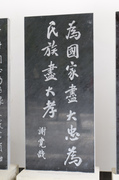 為國家盡大忠為
民族盡大孝
謝覺哉